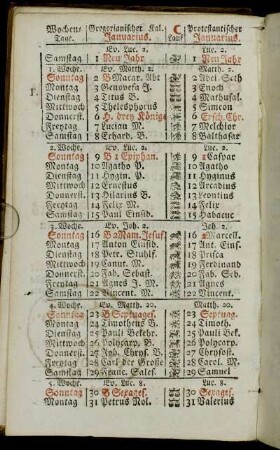 Wochens Tage. Gregorianischer Kal. Januarius. Lauf Protestantischer Januarius.
Ev. Luc. 2. Luc. 2.
Samstag 1 Neu Jahr 1 Neu Jahr
1. Woche. Ev. Matth. 2. Matth. 2.
Sonntag 2 B Macar. Abt 2 Abel Seth
Montag 3 Genovefa J. 3 Enoch
Dienstag 4 Titus B. 4 Methusal.
Mittwoch 5 Thelesphorus 5 Simeon
Donnerst. 6 H. drey Könige 6 Ersch. Chr.
Freytag 7 Lucian M. 7 Melchior
Samstag 8 Erhard. B. 8 Balthasar
2. Woche. Ev. Luc. 2. Luc. 2.
Sonntag 9 B 1 Epiphan. 9 1 Caspar
Montag 10 Agatho P. 10 Agatho
Dienstag 11 Hygin. P. 11 Hyginus
Mittwoch 12 Ernestus 12 Arcadius
Donnerst. 13 Hilarius B. 13 Leontius
Freytag 14 Felix M. 14 Felix
Samstag 15 Paul Einsid. 15 Habacuc
3. Woche. Ev. Joh. 2. Joh. 2.
Sonntag 16 B 2 Nam. Jesus 16 2 Marcell.
Montag 17 Anton Einsid. 17 Ant. Eins.
Dienstag 18 Petr. Stuhlf. 18 Prisca
Mittwoch 19 Canut. M. 19 Ferdinand
Donnerst. 20 Fab. Sebast. 20 Fab. Seb.
Freytag 21 Agnes J. M. 21 Agnes
Samstag 22 Vincent. M. 22 Vincent.
4. Woche. Ev. Matth. 20. Matth. 20.
Sonntag 23 B Septuages. 23 Septuag.
Montag 24 Timotheus B. 24 Timoth.
Dienstag 25 Pauli Bekehr. 25 Pauli Bek.
Mittwoch 26 Polycarp. B. 26 Polycarp.
Donnerst. 27 Joh. Chrys. B. 27 Chrysost.
Freytag 28 Carl der Große 28 Carol. M.
Samstag 29 Franc. Sales. 29 Samuel
5. Woche. Ev. Luc. 8. Luc. 8.
Sonntag 30 B Sexages. 30 Sexages.
Montag 31 Petrus Nol. 31 Valerius